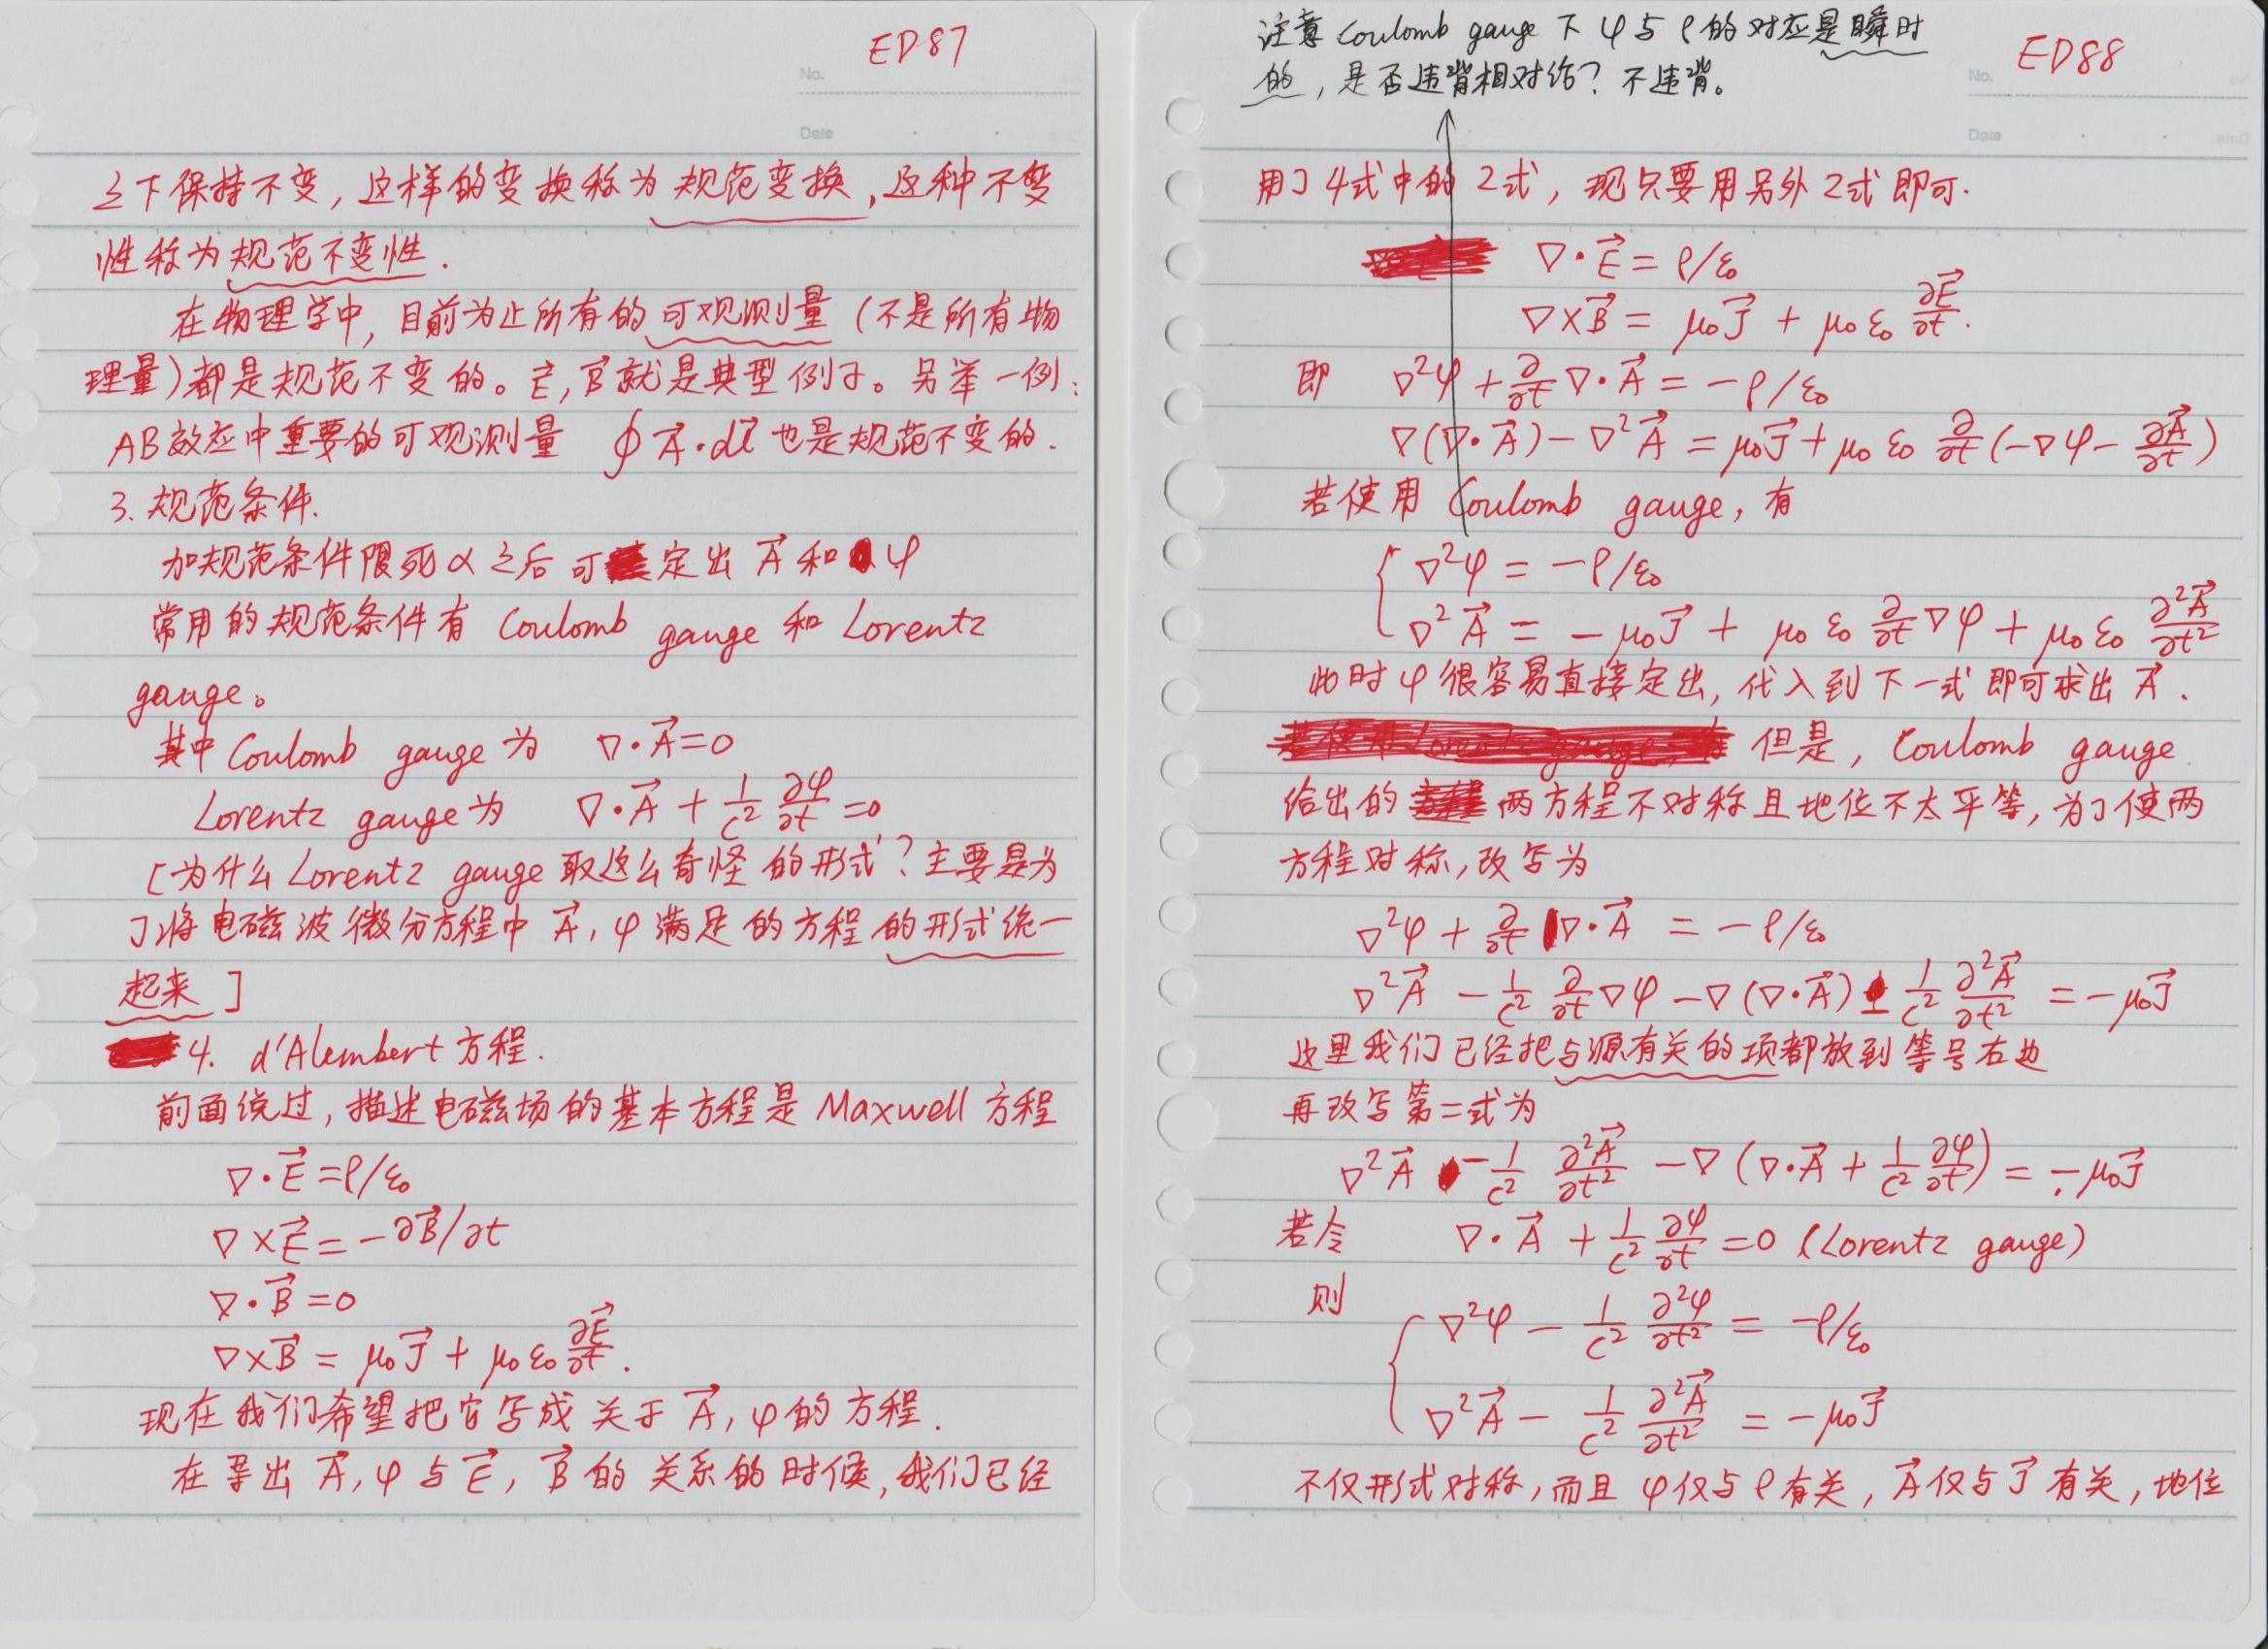 ED87
No.
Date
之下保持不变，这样的变换称为规范变换，这种不变
性称为规范不变性.
在物理学中，目前为止所有的可观测量（不是所有物
理量）都是规范不变的。E⃗, B⃗就是典型例子。另举一例：
AB效应中重要的可观测量 ∮A⃗·dl⃗ 也是规范不变的.
3. 规范条件.
加规范条件限死α之后可定出 A⃗ 和 φ
常用的规范条件有 Coulomb gauge 和 Lorentz
gauge。
其中 Coulomb gauge 为 ∇·A⃗=0
Lorentz gauge 为 ∇·A⃗ + 1/c² ∂φ/∂t =0
[为什么 Lorentz gauge 取这么奇怪的形式？主要是为
了将电磁波微分方程中 A⃗, φ 满足的方程的形式统一
起来]
4. d'Alembert 方程.
前面说过，描述电磁场的基本方程是 Maxwell 方程
∇·E⃗ =ρ/ε₀
∇×E⃗ = -∂B⃗/∂t
∇·B⃗ =0
∇×B⃗ = μ₀J⃗ + μ₀ε₀ ∂E⃗/∂t .
现在我们希望把它写成关于 A⃗, φ的方程.
在导出 A⃗, φ 与 E⃗, B⃗ 的关系的时候，我们已经
注意 Coulomb gauge 下 φ与ρ的对应是瞬时
的，是否违背相对论？不违背。
ED88
No.
Date
用了4式中的2式，现只要用另外2式即可.
∇·E⃗ = ρ/ε₀
∇×B⃗ = μ₀J⃗ + μ₀ε₀ ∂E⃗/∂t.
即 ∇²φ + ∂/∂t ∇·A⃗ = -ρ/ε₀
∇(∇·A⃗) - ∇²A⃗ = μ₀J⃗ + μ₀ε₀ ∂/∂t (-∇φ - ∂A⃗/∂t)
若使用 Coulomb gauge，有
{ ∇²φ = -ρ/ε₀
∇²A⃗ = -μ₀J⃗ + μ₀ε₀ ∂/∂t ∇φ + μ₀ε₀ ∂²A⃗/∂t²
此时φ很容易直接定出，代入到下一式即可求出 A⃗.
但是，Coulomb gauge
给出的两方程不对称且地位不太平等，为了使两
方程对称，改写为
∇²φ + ∂/∂t ∇·A⃗ = -ρ/ε₀
∇²A⃗ - 1/c² ∂/∂t ∇φ - ∇(∇·A⃗) - 1/c² ∂²A⃗/∂t² = -μ₀J⃗
这里我们已经把与源有关的项都放到等号右边
再改写第二式为
∇²A⃗ - 1/c² ∂²A⃗/∂t² - ∇(∇·A⃗ + 1/c² ∂φ/∂t) = -μ₀J⃗
若令 ∇·A⃗ + 1/c² ∂φ/∂t =0 (Lorentz gauge)
则
{ ∇²φ - 1/c² ∂²φ/∂t² = -ρ/ε₀
∇²A⃗ - 1/c² ∂²A⃗/∂t² = -μ₀J⃗
不仅形式对称，而且 φ仅与ρ有关，A⃗仅与J⃗有关，地位